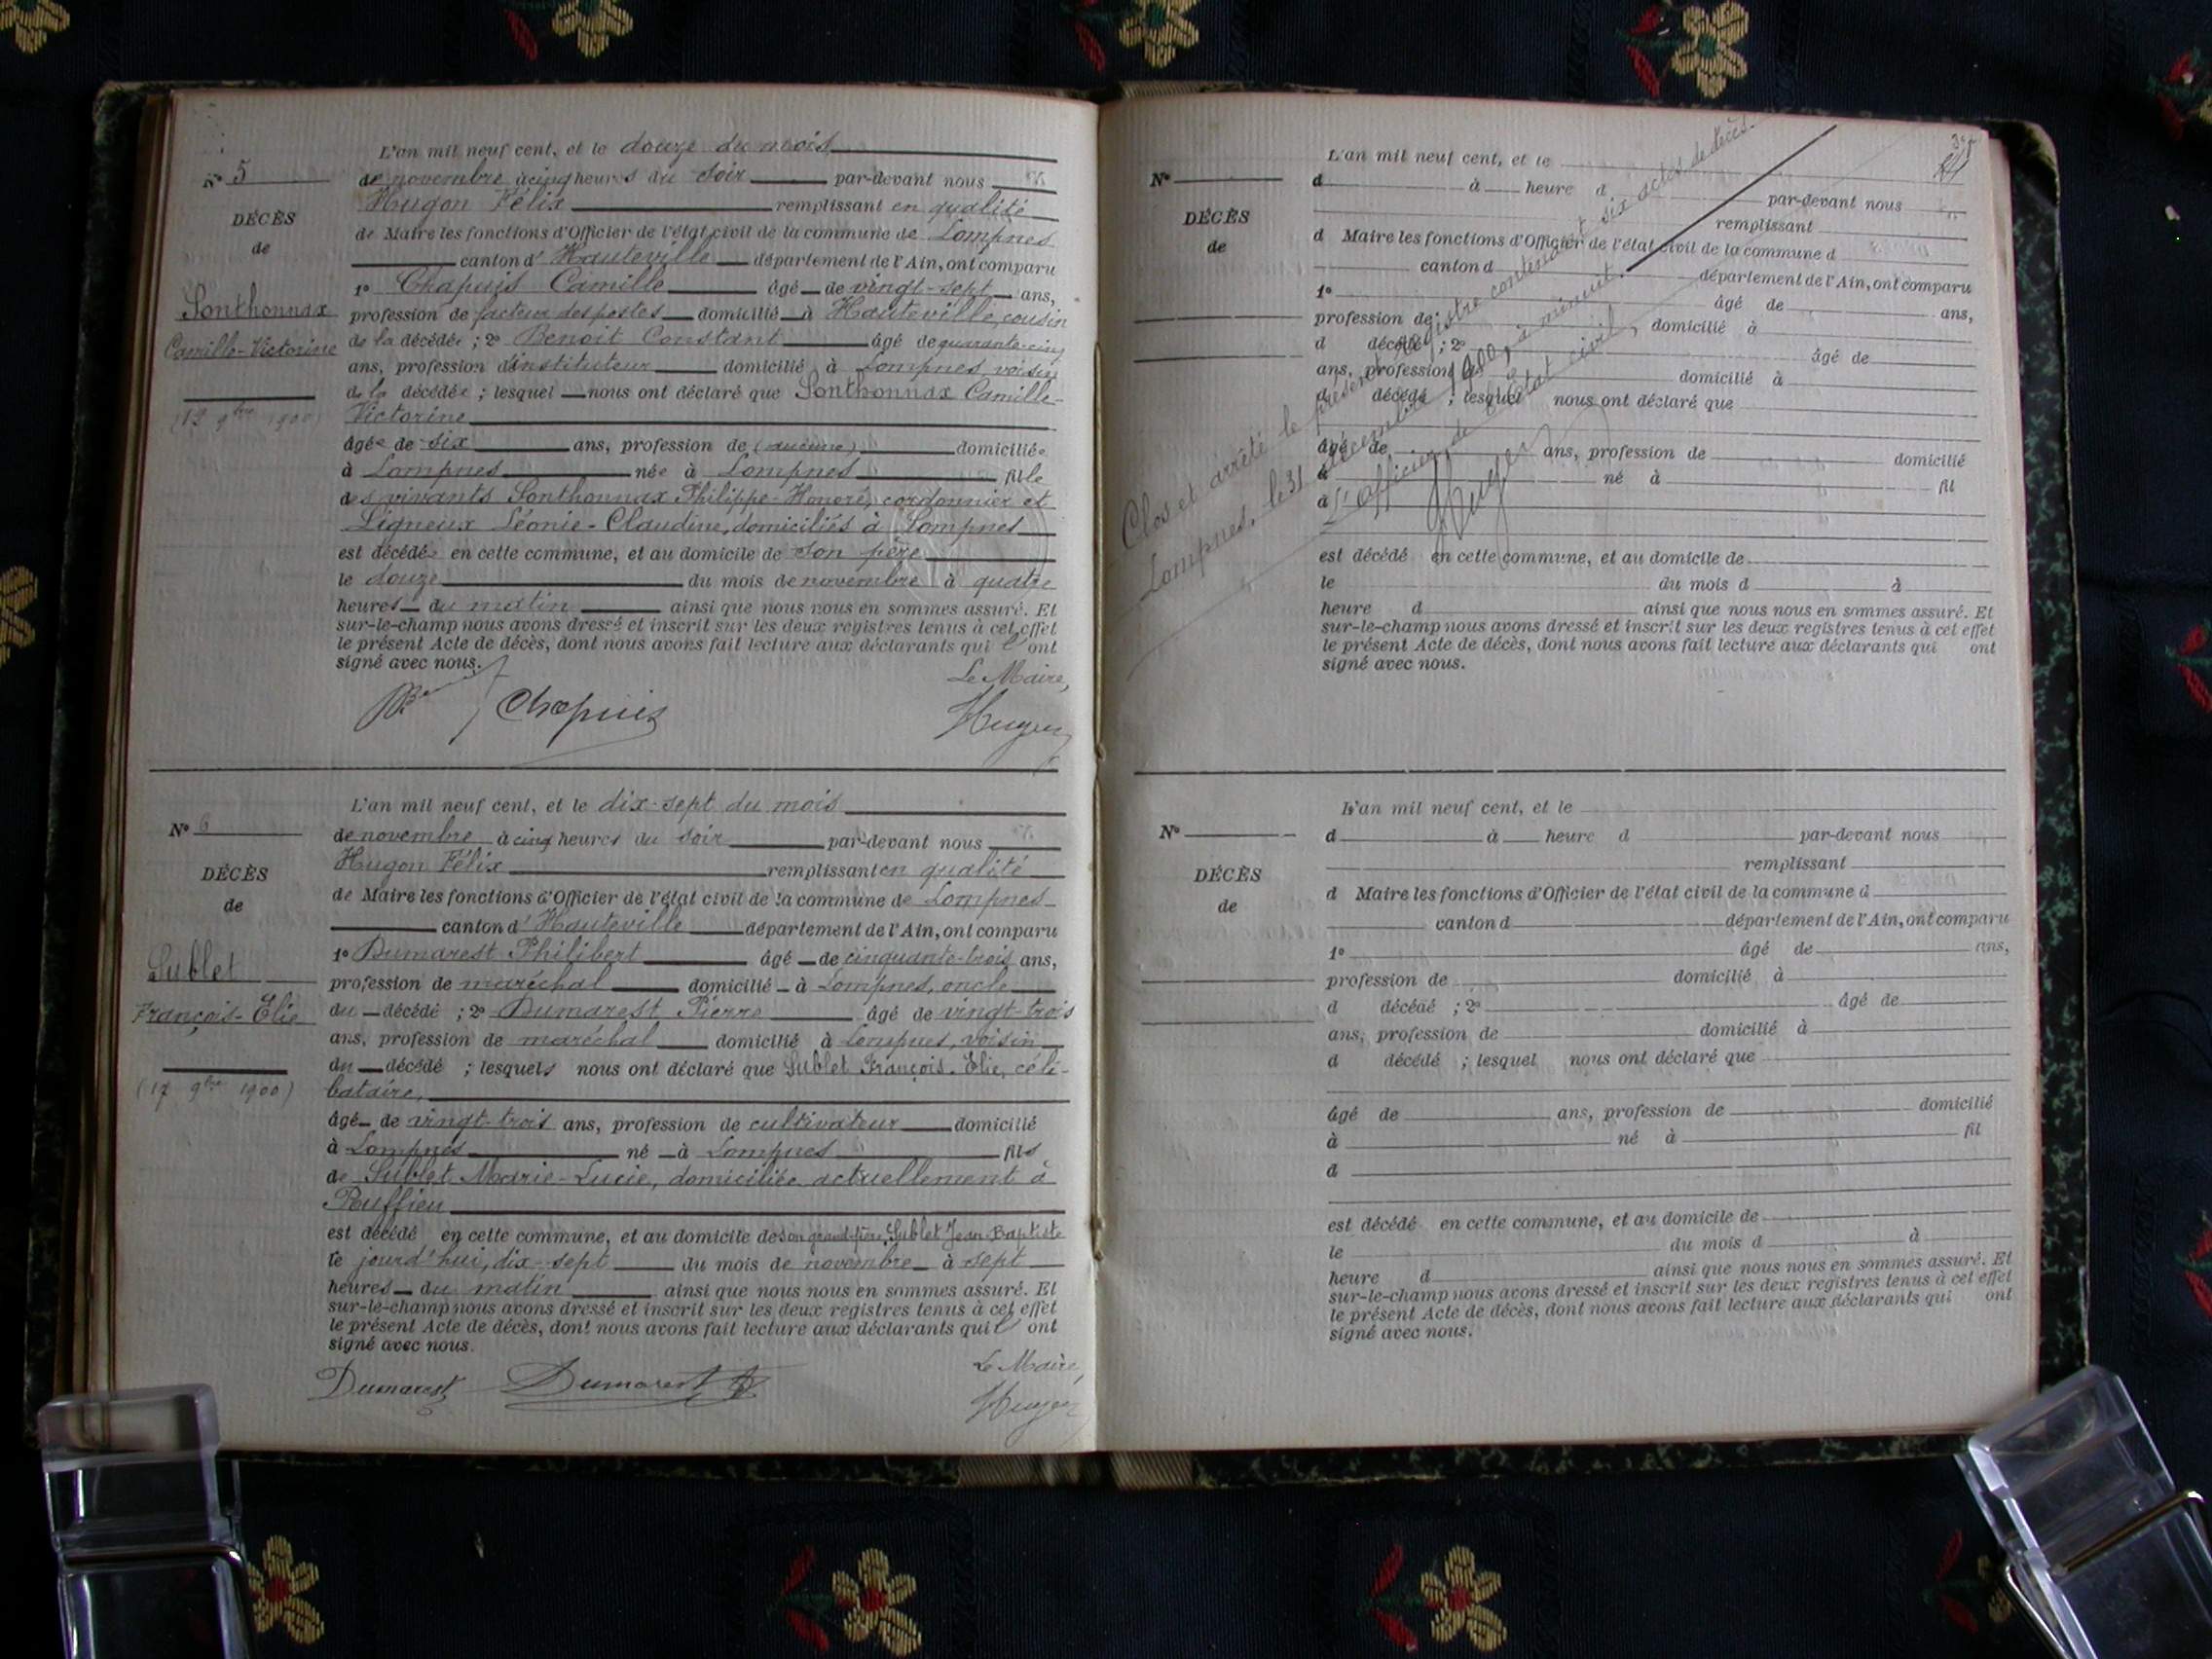 L'an mil neuf cent, et le douze du mois
N° 5
de novembre à cinq heures du soir par-devant nous
Hugon Félix remplissant en qualité
DÉCÈS
de Maire les fonctions d'Officier de l'état civil de la commune de Lompnes
de
canton d'Hauteville département de l'Ain, ont comparu
1° Chapuis Camille âgé de vingt-sept ans,
Sonthonnax
profession de facteur des postes domicilié à Hauteville, cousin
Camille-Victorine
de la décédée ; 2° Benoit Constant âgé de quarante-cinq
ans, profession d'instituteur domicilié à Lompnes, voisin
de la décédée ; lesquel nous ont déclaré que Sonthonnax Camille-
(12 9bre 1900)
Victorine
âgée de six ans, profession de (aucune) domiciliée
à Lompnes née à Lompnes fille
des vivants Sonthonnax Philippe-Honoré, cordonnier et
Ligneux Léonie-Claudine, domiciliés à Lompnes
est décédée en cette commune, et au domicile de son père
le douze du mois de novembre à quatre
heures du matin ainsi que nous nous en sommes assuré. Et
sur-le-champ nous avons dressé et inscrit sur les deux registres tenus à cet effet
le présent Acte de décès, dont nous avons fait lecture aux déclarants qui l'ont
signé avec nous.
Le Maire,
Chapuis
Hugon
L'an mil neuf cent, et le dix-sept du mois
N° 6
de novembre à cinq heures du soir par-devant nous
Hugon Félix remplissant en qualité
DÉCÈS
de Maire les fonctions d'Officier de l'état civil de la commune de Lompnes
de
canton d'Hauteville département de l'Ain, ont comparu
1° Dumarest Philibert âgé de cinquante-trois ans,
Sublet
profession de maréchal domicilié à Lompnes, oncle
François-Elie
du décédé ; 2° Dumarest Pierre âgé de vingt-trois
ans, profession de maréchal domicilié à Lompnes, voisin
du décédé ; lesquels nous ont déclaré que Sublet François-Elie, céli-
(17 9bre 1900)
bataire,
âgé de vingt-trois ans, profession de cultivateur domicilié
à Lompnes né à Lompnes fils
de Sublet Marie-Lucie, domiciliée actuellement à
Ruffieu
est décédé en cette commune, et au domicile de son grand-père, Sublet Jean-Baptiste
le jourd'hui, dix-sept du mois de novembre à sept
heures du matin ainsi que nous nous en sommes assuré. Et
sur-le-champ nous avons dressé et inscrit sur les deux registres tenus à cet effet
le présent Acte de décès, dont nous avons fait lecture aux déclarants qui l'ont
signé avec nous.
Le Maire,
Dumarest Dumarest
Hugon
L'an mil neuf cent, et le
N°
d à heure d par-devant nous
remplissant
DÉCÈS
d Maire les fonctions d'Officier de l'état civil de la commune d
de
canton d département de l'Ain, ont comparu
1° âgé de ans,
profession de domicilié à
d décédé ; 2° âgé de
ans, profession domicilié à
d décédé ; lesquel nous ont déclaré que
âgé de ans, profession de domicilié
à né à fil
d
est décédé en cette commune, et au domicile de
le du mois d à
heure d ainsi que nous nous en sommes assuré. Et
sur-le-champ nous avons dressé et inscrit sur les deux registres tenus à cet effet
le présent Acte de décès, dont nous avons fait lecture aux déclarants qui ont
signé avec nous.
Clos et arrêté le présent registre contenant six actes de décès.
Lompnes, le 31 décembre 1900, à minuit.
L'officier de l'état civil,
Hugon
L'an mil neuf cent, et le
N°
d à heure d par-devant nous
remplissant
DÉCÈS
d Maire les fonctions d'Officier de l'état civil de la commune d
de
canton d département de l'Ain, ont comparu
1° âgé de ans,
profession de domicilié à
d décédé ; 2° âgé de
ans, profession de domicilié à
d décédé ; lesquel nous ont déclaré que
âgé de ans, profession de domicilié
à né à fil
d
est décédé en cette commune, et au domicile de
le du mois d à
heure d ainsi que nous nous en sommes assuré. Et
sur-le-champ nous avons dressé et inscrit sur les deux registres tenus à cet effet
le présent Acte de décès, dont nous avons fait lecture aux déclarants qui ont
signé avec nous.